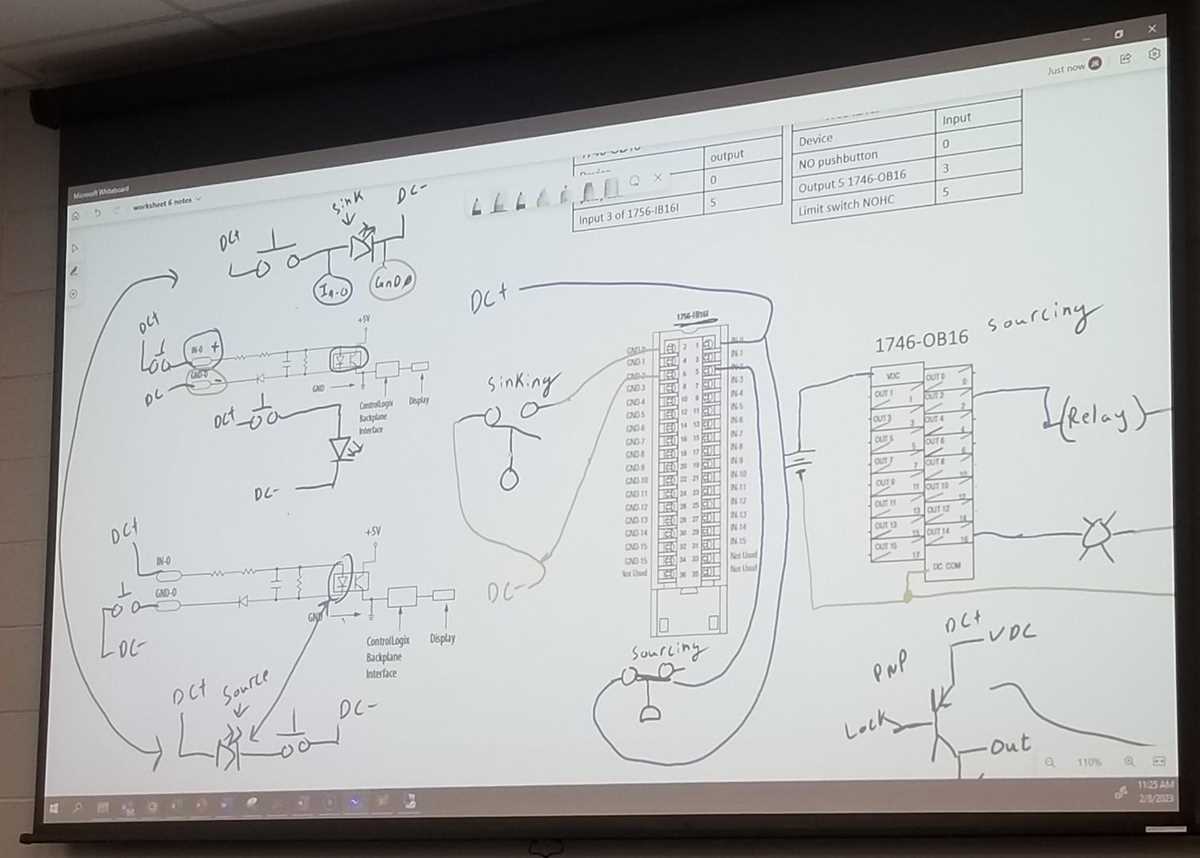 Microsoft Whiteboard
worksheet 6 notes
Just now
output
0
Input 3 of 1756-IB16I
5
Device
Input
NO pushbutton
0
Output 5 1746-OB16
3
Limit switch NOHC
5
Sink
DC+
DC-
In-0
GND 0
DC+
IN-0
+
GND-0
-
DC
+5V
GND
ControlLogix
Backplane
Interface
Display
DC+
DC-
DC+
IN-0
GND-0
DC-
+5V
GND
ControlLogix
Backplane
Interface
Display
DC+
Source
DC-
DC+
Sinking
DC-
1756-IB16I
GND-0
GND-1
GND-2
GND-3
GND-4
GND-5
GND-6
GND-7
GND-8
GND-9
GND-10
GND-11
GND-12
GND-13
GND-14
GND-15
GND-15
Not Used
2 1
4 3
6 5
8 7
10 9
12 11
14 13
16 15
18 17
20 19
22 21
24 23
26 25
28 27
30 29
32 31
34 33
36 35
IN-0
IN-1
IN-2
IN-3
IN-4
IN-5
IN-6
IN-7
IN-8
IN-9
IN-10
IN-11
IN-12
IN-13
IN-14
IN-15
Not Used
Not Used
Sourcing
1746-OB16
Sourcing
VDC
OUT 0
OUT 1
OUT 2
OUT 3
OUT 4
OUT 5
OUT 6
OUT 7
OUT 8
OUT 9
OUT 10
OUT 11
OUT 12
OUT 13
OUT 14
OUT 15
DC COM
(Relay)
DC+
VDC
PNP
Lock
Out
110%
11:25 AM
2/8/2023